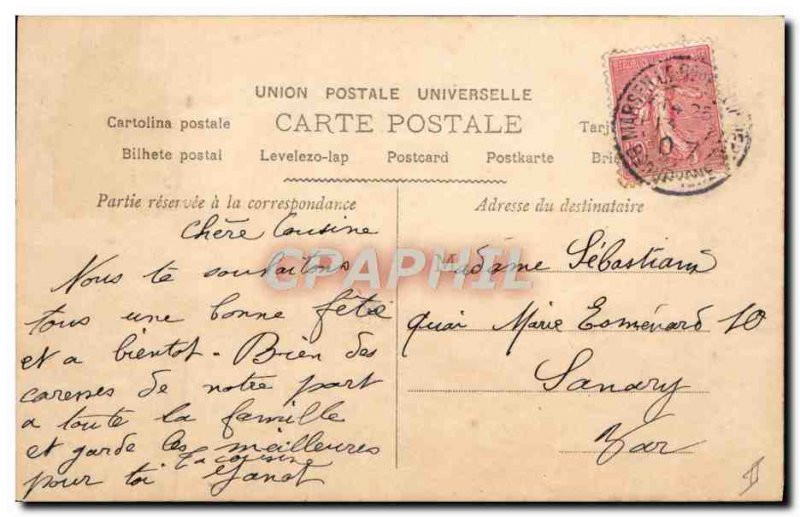 UNION POSTALE UNIVERSELLE
Cartolina postale CARTE POSTALE Tarj
Bilhete postal Levelezo-lap Postcard Postkarte Brie
Partie réservée à la correspondance
Adresse du destinataire
Chère Cousine
Nous te souhaitons
tous une bonne fête
et a bientot. Bien des
caresses de notre part
a toute la famille
et garde les meilleures
pour toi
Ta cousine
Madame Sébastiani
quai Marie Esménard 10
Sanary
Var
CPAPHIL
MARSEILLE
II